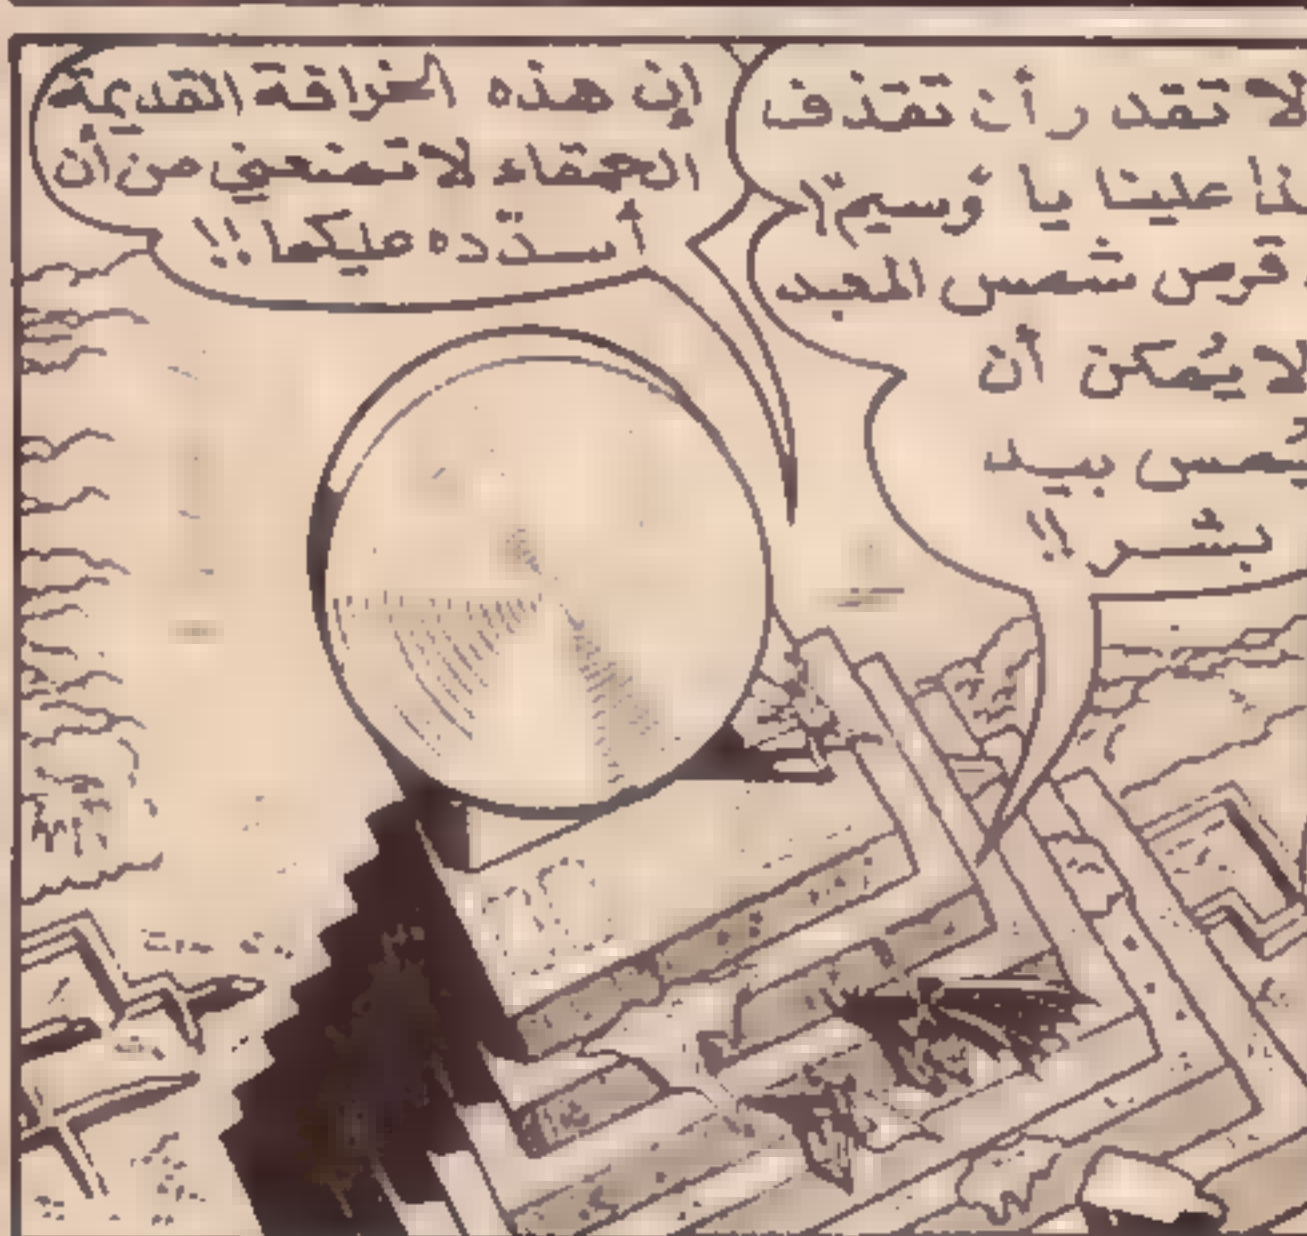 لا تقدر أن تقذف
هذا علينا يا وسيم!
قرص شمس المعبد
لا يُمكن أن
يُمس بيد
بشر!!
إن هذه الخرافة القديمة
الحمقاء لا تمنعني من أن
أسدّده عليكما!!